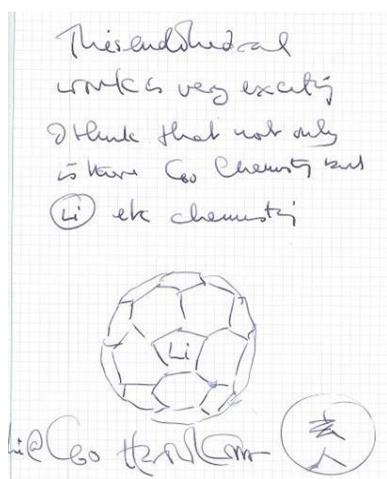 This endohedral
work is very exciting
I think that not only
is there C60 Chemistry but
Li etc chemistry
Li
Li@C60